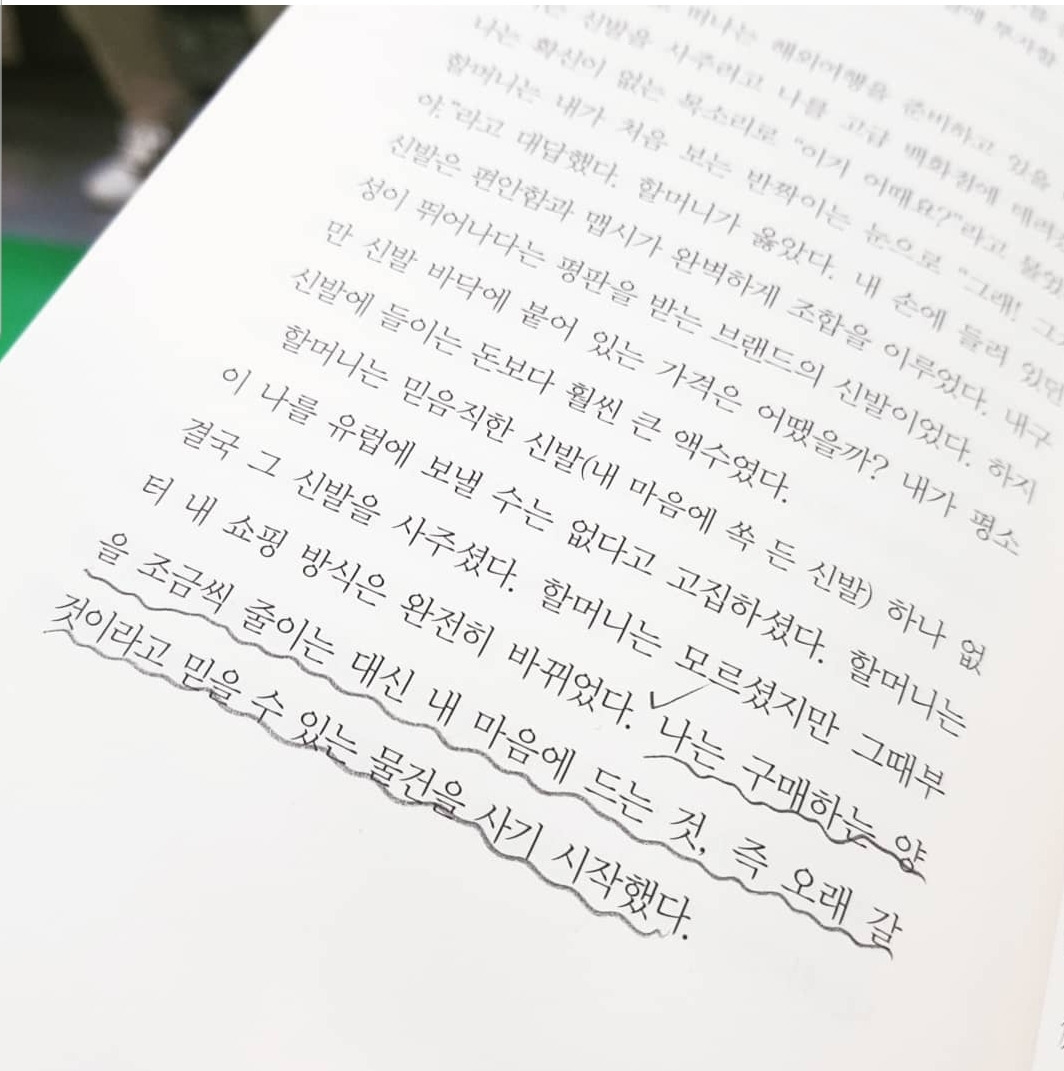 떠나는 해외여행을 준비하고 있을
신발을 사주려고 나를 고급 백화점에
나는 확신이 없는 목소리로 "이거 어때요?"라고 물었
할머니는 내가 처음 보는 반짝이는 눈으로 "그래!
야."라고 대답했다. 할머니가 옳았다. 내 손에 들려 있던
신발은 편안함과 맵시가 완벽하게 조합을 이루었다. 내구
성이 뛰어나다는 평판을 받는 브랜드의 신발이었다. 하지
만 신발 바닥에 붙어 있는 가격은 어땠을까? 내가 평소
신발에 들이는 돈보다 훨씬 큰 액수였다.
할머니는 믿음직한 신발(내 마음에 쏙 든 신발) 하나 없
이 나를 유럽에 보낼 수는 없다고 고집하셨다. 할머니는
결국 그 신발을 사주셨다. 할머니는 모르셨지만 그때부
터 내 쇼핑 방식은 완전히 바뀌었다. 나는 구매하는 양
을 조금씩 줄이는 대신 내 마음에 드는 것, 즉 오래 갈
것이라고 믿을 수 있는 물건을 사기 시작했다.